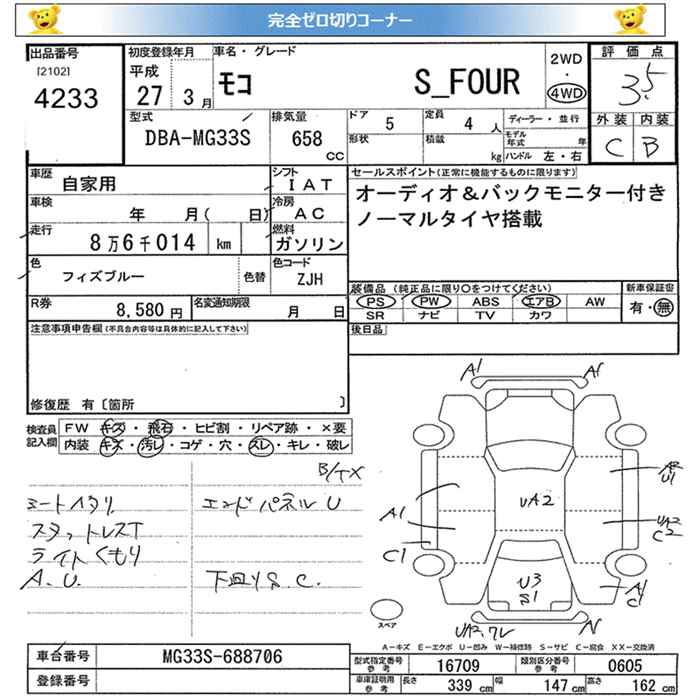 完全ゼロ切りコーナー
出品番号
[2102]
4233
初度登録年月
平成
27 3月
車名・グレード
モコ S_FOUR
2WD
・
4WD
評価点
3.5
外装 内装
C B
型式
DBA-MG33S
排気量
658
CC
ドア 5
定員 4人
形状
積載 kg
ディーラー・並行
モデル年式 年
ハンドル 左・右
車歴 自家用
シフト IAT
車検 年 月( 日)
冷房 AC
走行 8万6千014 km
燃料 ガソリン
色 フィズブルー 色替
色コード ZJH
R券 8,580円
名変通知期限 月 日
セールスポイント(正常に機能するものに限ります)
オーディオ&バックモニター付き
ノーマルタイヤ搭載
装備品 (純正品に限り○をつけてください)
PS PW ABS エアB AW
SR ナビ TV カワ
新車保証書
有・無
後日品
注意事項申告欄(不具合内容等は具体的に記入して下さい)
修復歴 有〔箇所 〕
検査員記入欄
FW キズ・飛石・ヒビ割・リペア跡・×要
内装 キズ・汚レ・コゲ・穴・スレ・キレ・破レ
B/TX
シートヘタリ エンドパネルU
スタットレスT
ライトくもり
A.U. 下廻りS.C.
A1 A1
UA2
A1
C1
UA2
C2
U3
S1
A1
C1
スペア
A-キズ E-エクボ U-凹み W-補修跡 S-サビ C-腐食 XX-交換済
車台番号 MG33S-688706
登録番号
型式指定番号 参考 16709
類別区分番号 参考 0605
車庫証明用 参考 長さ 339cm 幅 147cm 高さ 162cm